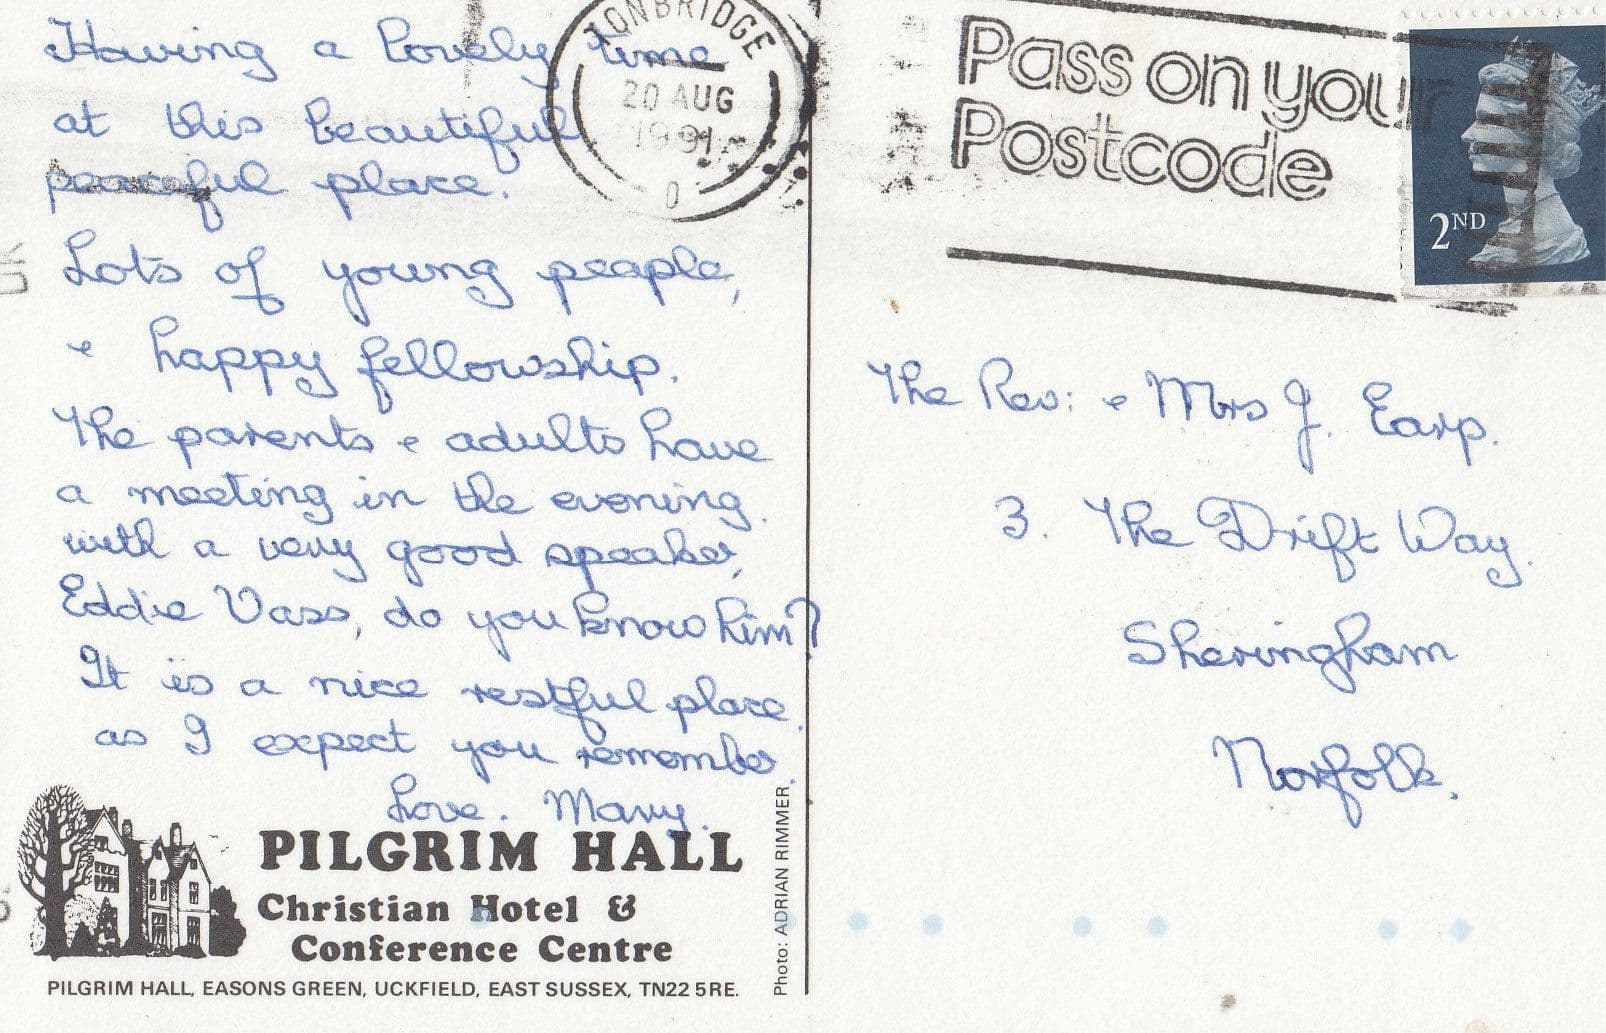 Having a lovely time
at this beautiful
peaceful place.
Lots of young people,
& happy fellowship.
The parents & adults have
a meeting in the evening.
with a very good speaker,
Eddie Vass, do you know him?
It is a nice restful place.
as I expect you remember.
Love. Mary.
PILGRIM HALL
Christian Hotel &
Conference Centre
PILGRIM HALL, EASONS GREEN, UCKFIELD, EAST SUSSEX, TN22 5RE.
Photo: ADRIAN RIMMER
TONBRIDGE
20 AUG
1991
Pass on your
Postcode
2ND
The Rev: & Mrs J. Earp.
3. The Drift Way.
Sheringham
Norfolk.